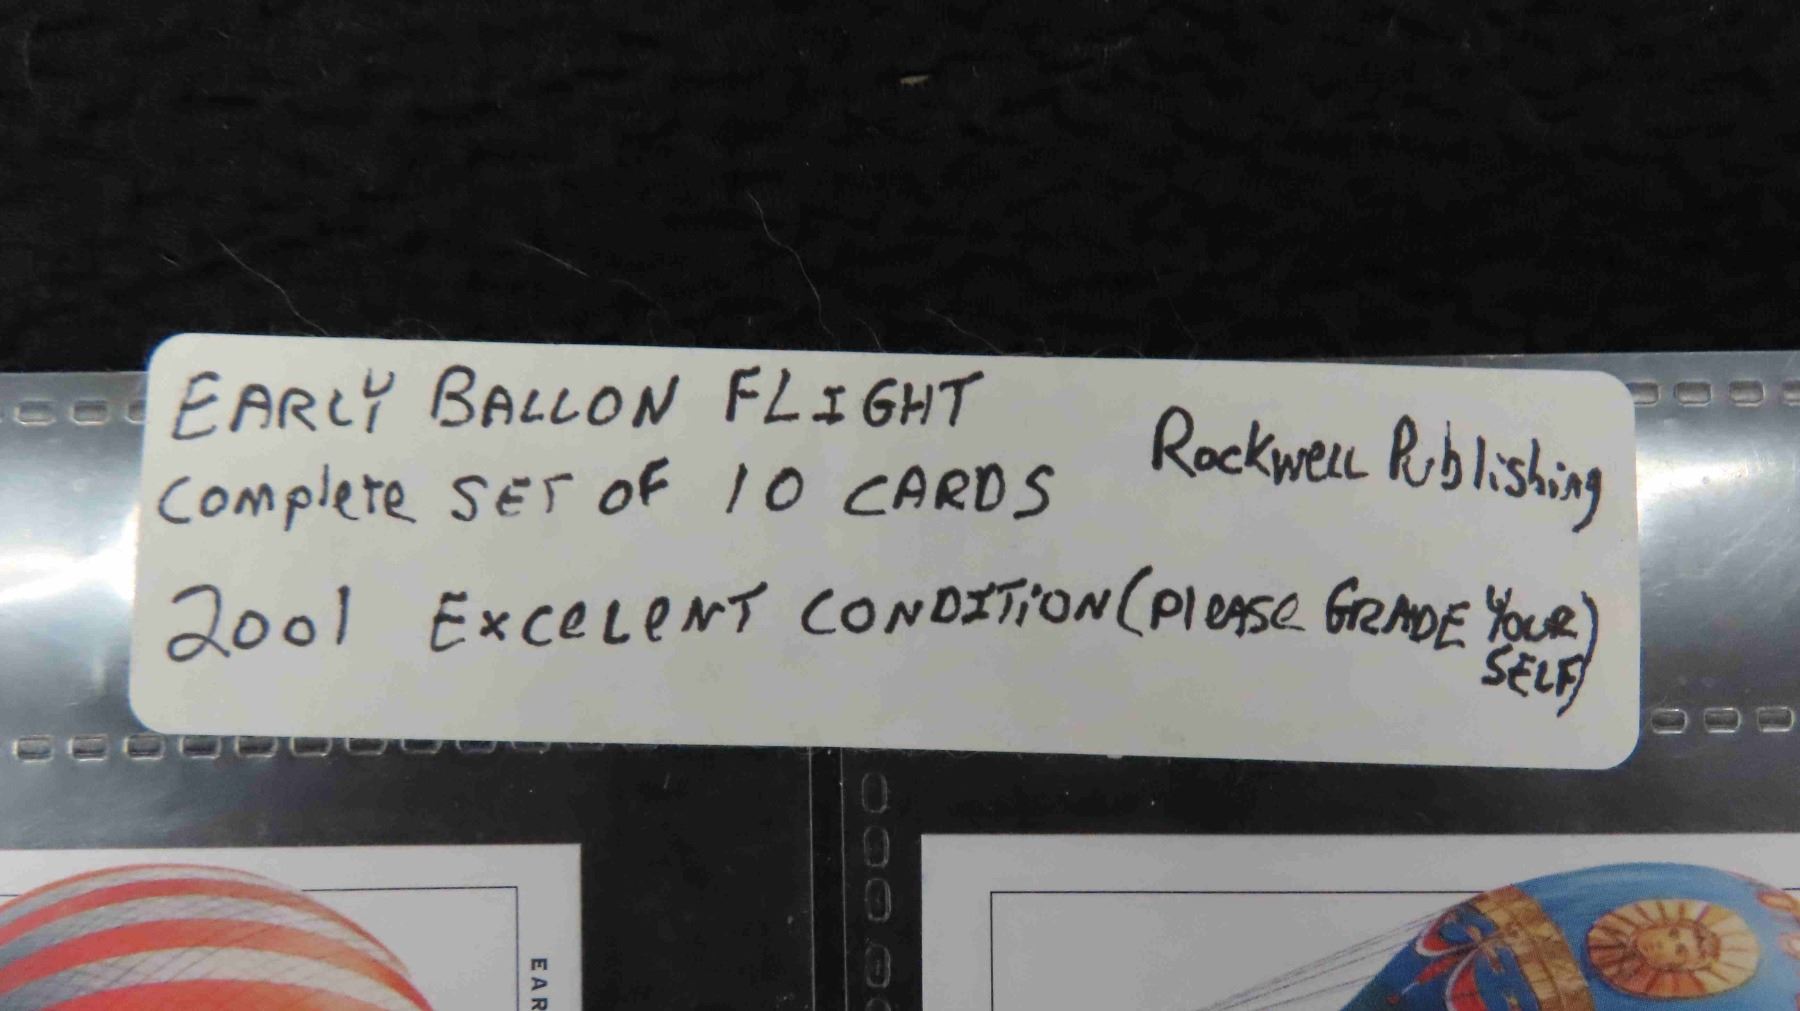 EARLY BALLON FLIGHT
Complete SET OF 10 CARDS
Rockwell Publishing
2001 ExceLeNT CONDITION (PlEASe GRADE YOUR SELF)
EAR